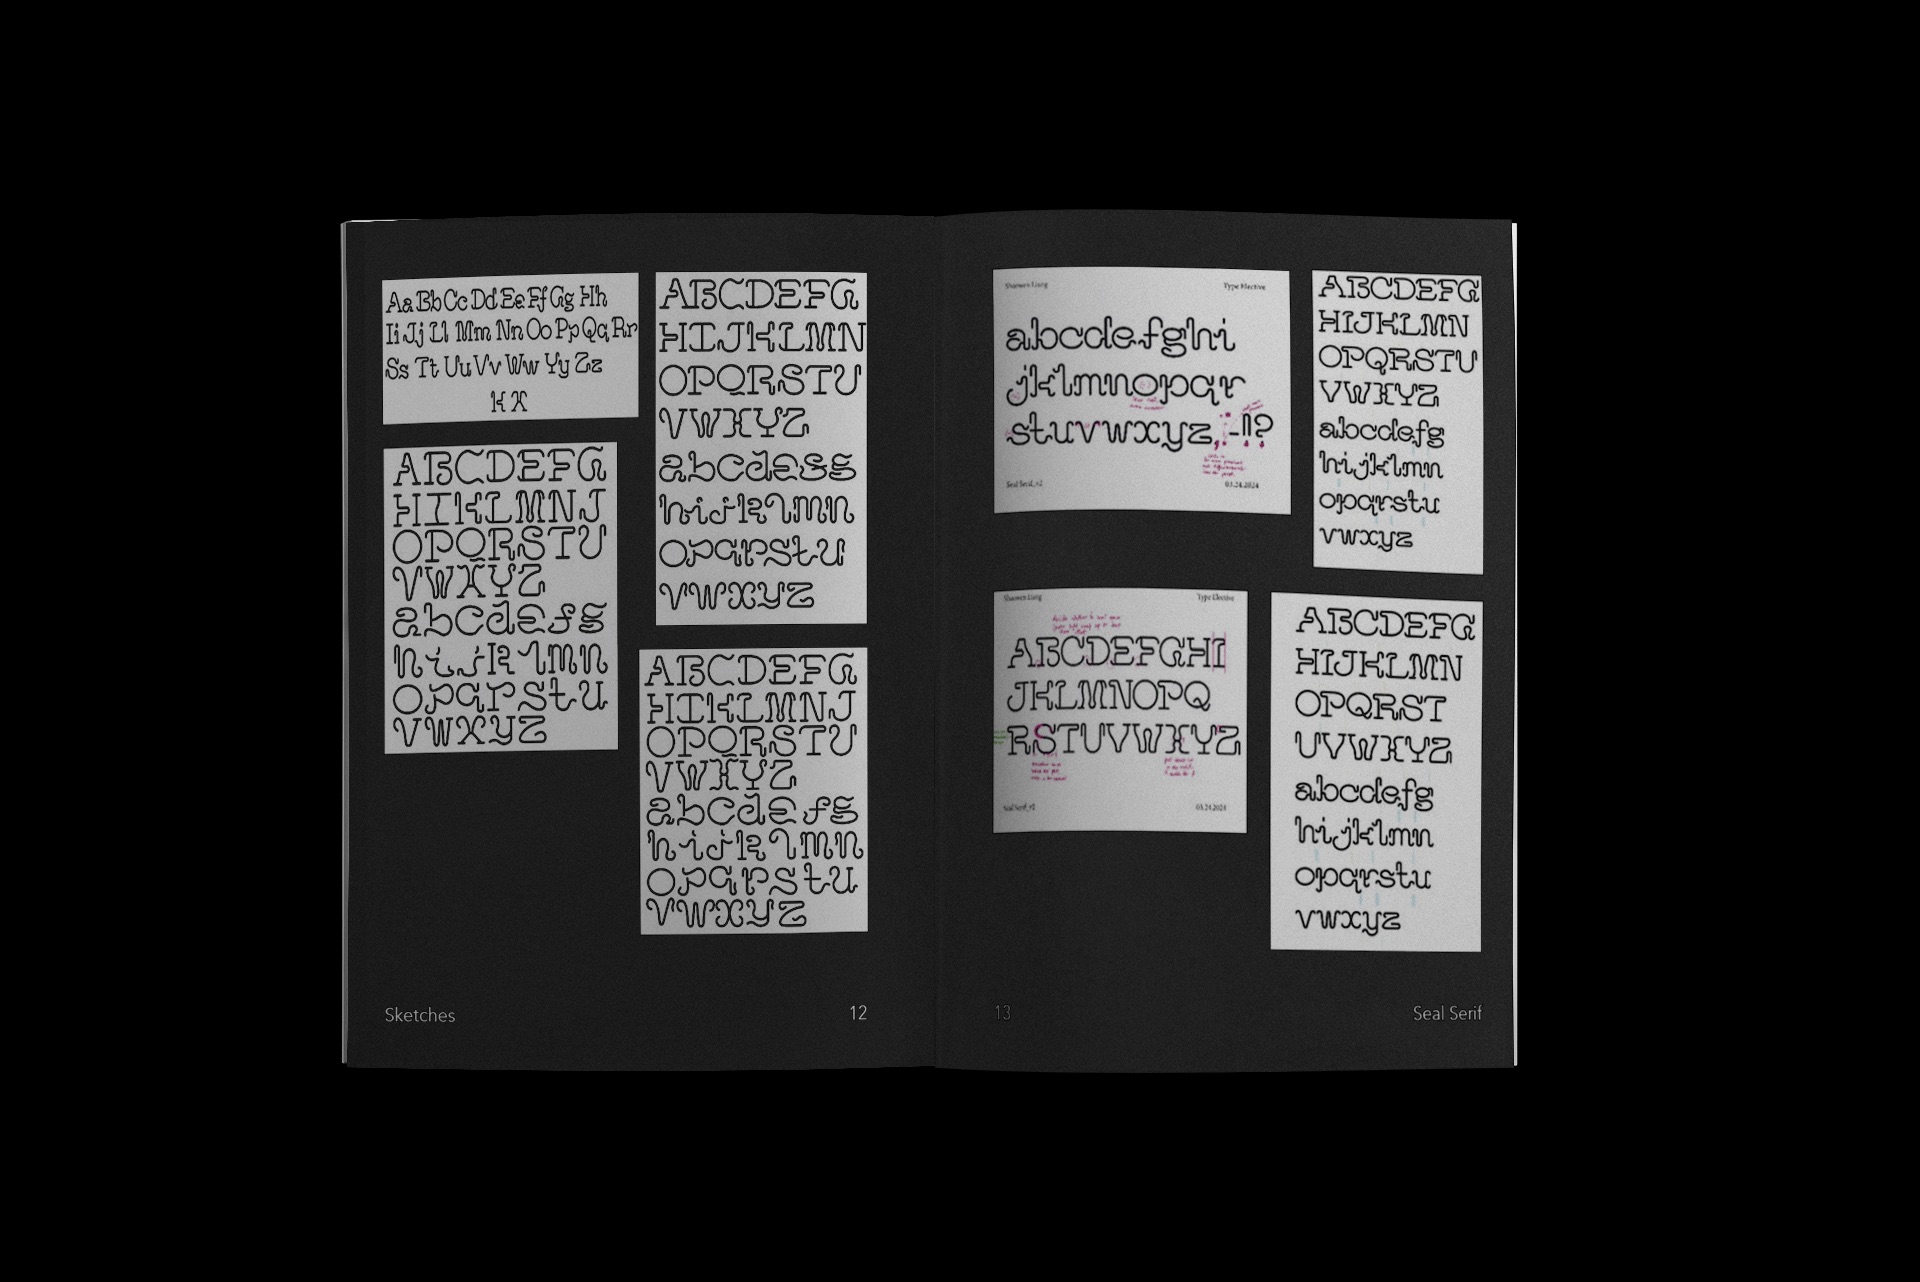 Aa Bb Cc Dd Ee Ff Gg Hh
Ii Jj Ll Mm Nn Oo Pp Qq Rr
Ss Tt Uu Vv Ww Yy Zz
K X
ABCDEFG
HIKLMNJ
OPQRSTU
VWXYZ
abcdefg
hijklmn
opqrstu
vwxyz
ABCDEFG
HIJKLMN
OPQRSTU
VWXYZ
abcdefg
hijklmn
opqrstu
vwxyz
ABCDEFG
HIKLMNJ
OPQRSTU
VWXYZ
abcdefg
hijklmn
opqrstu
vwxyz
Sketches
12
Type Elective
abcdefghi
jklmnopqr
stuvwxyz,.-!?
Seal Serif_v2
03.24.2024
ABCDEFG
HIJKLMN
OPQRSTU
VWXYZ
abcdefg
hijklmn
opqrstu
vwxyz
Type Elective
ABCDEFGHI
JKLMNOPQ
RSTUVWXYZ
Seal Serif_v2
03.24.2024
ABCDEFG
HIJKLMN
OPQRST
UVWXYZ
abcdefg
hijklmn
opqrstu
vwxyz
13
Seal Serif